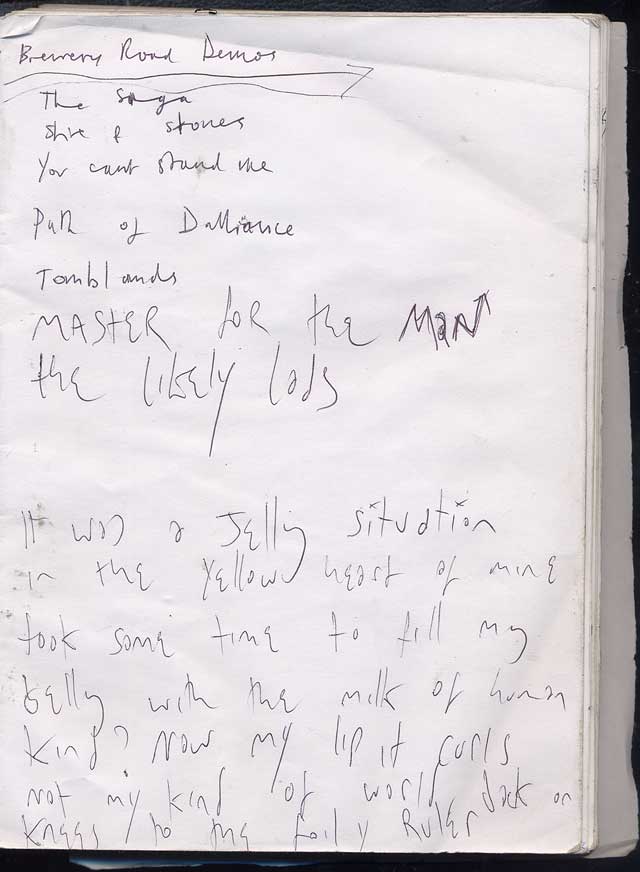 Brewery Road Demos
The Saga
& stones
You cant stand me
Path of Dalliance
Tomblands
MASTER foR the MAN
the likely lads
It was a Jelly situation
in the yellow heart of mine
took some time to fill my
belly with the milk of human
kind? Now my lip it curls
not my kind of world Jack on
knees to the RULER